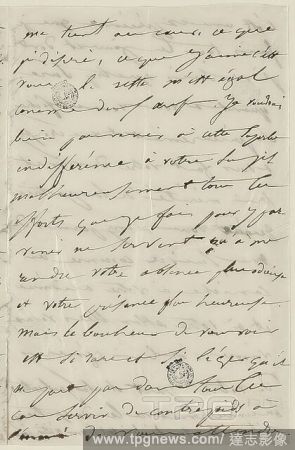 me tient au cœur, ce que
je désire, ce que j'aime c'est
vous. Le reste m'est égal
comme
bien parvenir à cette superbe
indifférence à votre sujet
malheureusement tous les
efforts que je fais pour y par
venir ne servent qu'à me
rendre votre absence plus odieuse
et votre présence plus heureuse
mais le bonheur de vous voir
est si rare et si léger qu'il
ne peut pas dans
cas servir de contrepoids à
TPG
www.tpgnews.com / 達志影像